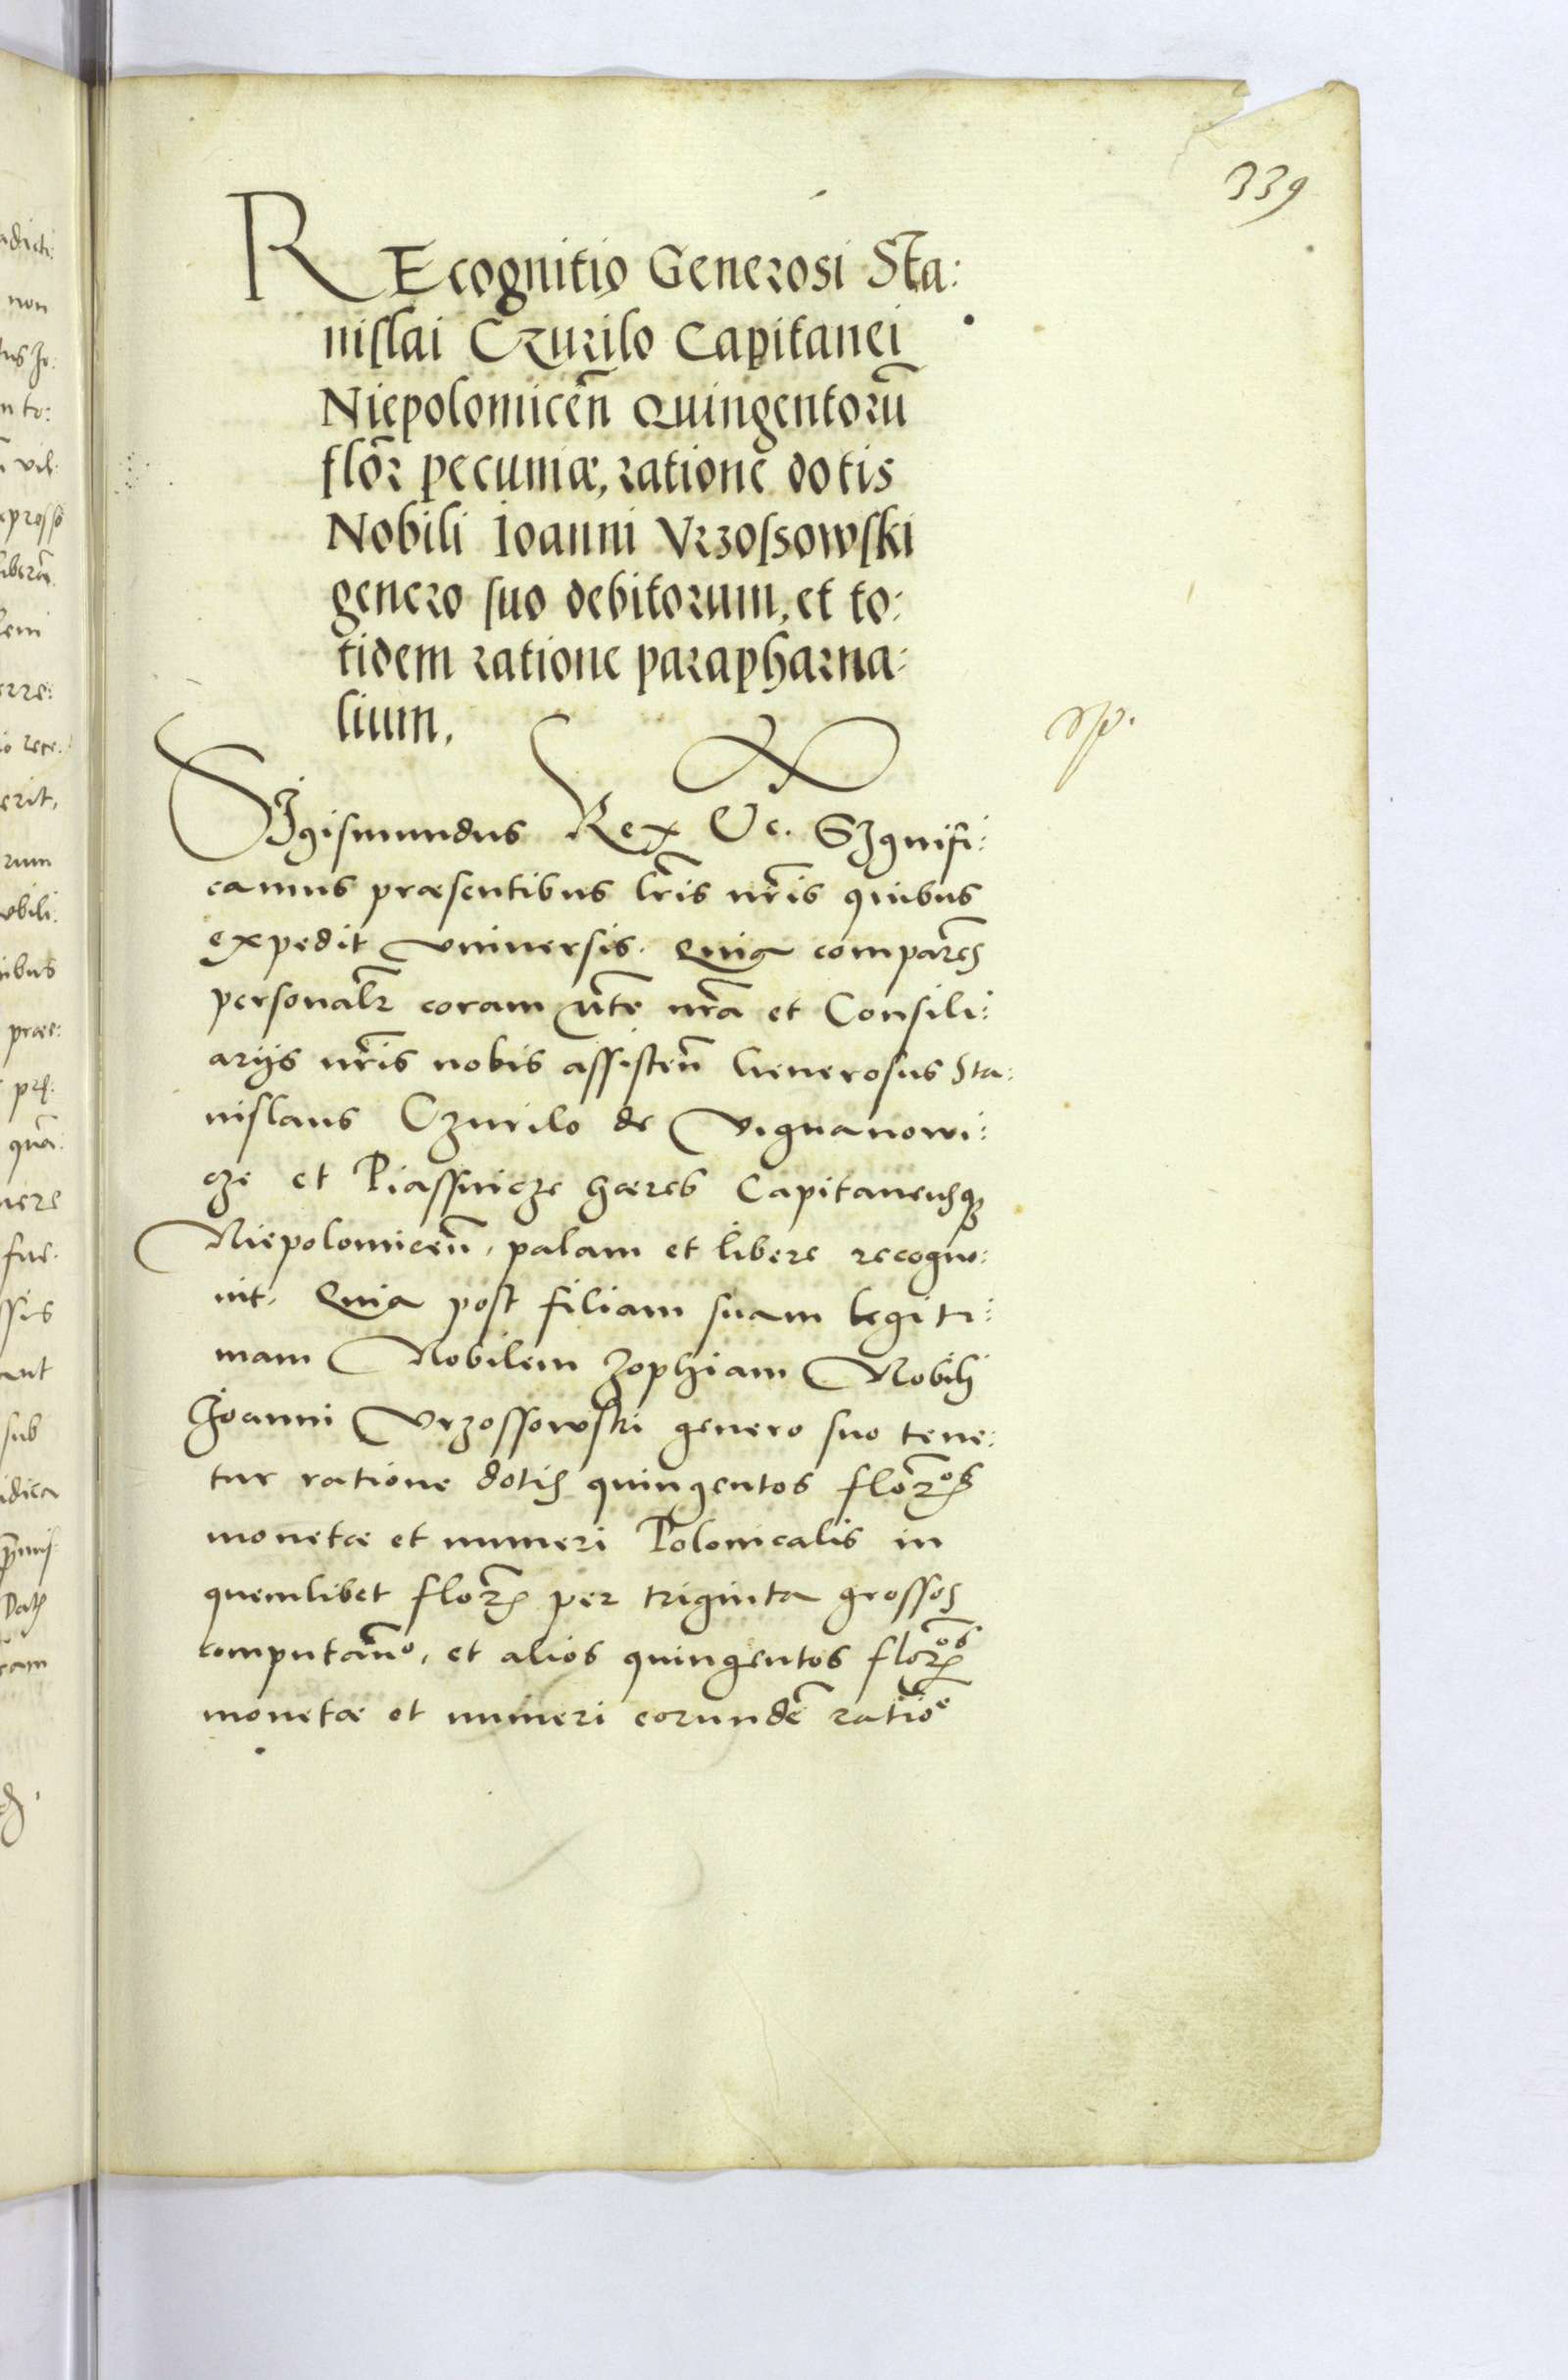 339
REcognitio Generosi Sta:
nislai Czurilo Capitanei
Niepolomiceñ Quingentorū
flor̃ pecuniæ, ratione dotis
Nobili Ioanni Vrzossowski
genero suo debitorum, et to:
tidem ratione parapharna:
lium.
Sigismundus Rex Etc. Signifi:
camus præsentibus lr̃is nr̃is quibus
expedit vniuersis. Quia compareñs
personalr̃ coram m̃te nr̃a et Consili:
arijs nr̃is nobis assisteñ Generosus Sta:
nislaus Czurilo de Vignanowi:
cze et Piassnicze hæres Capitaneusq3
Niepolomiceñ, palam et libere recogno:
uit, Quia post filiam suam legiti:
mam Nobilem Zophiam Nobili
Ioanni Vrzossowski genero suo tene:
tur ratione dotis quingentos flor̃os
monetæ et numeri Polonicalis in
quemlibet flor̃ per triginta grossos
computañdo, et alios quingentos flor̃os
monetæ et numeri eorundē ratiōe